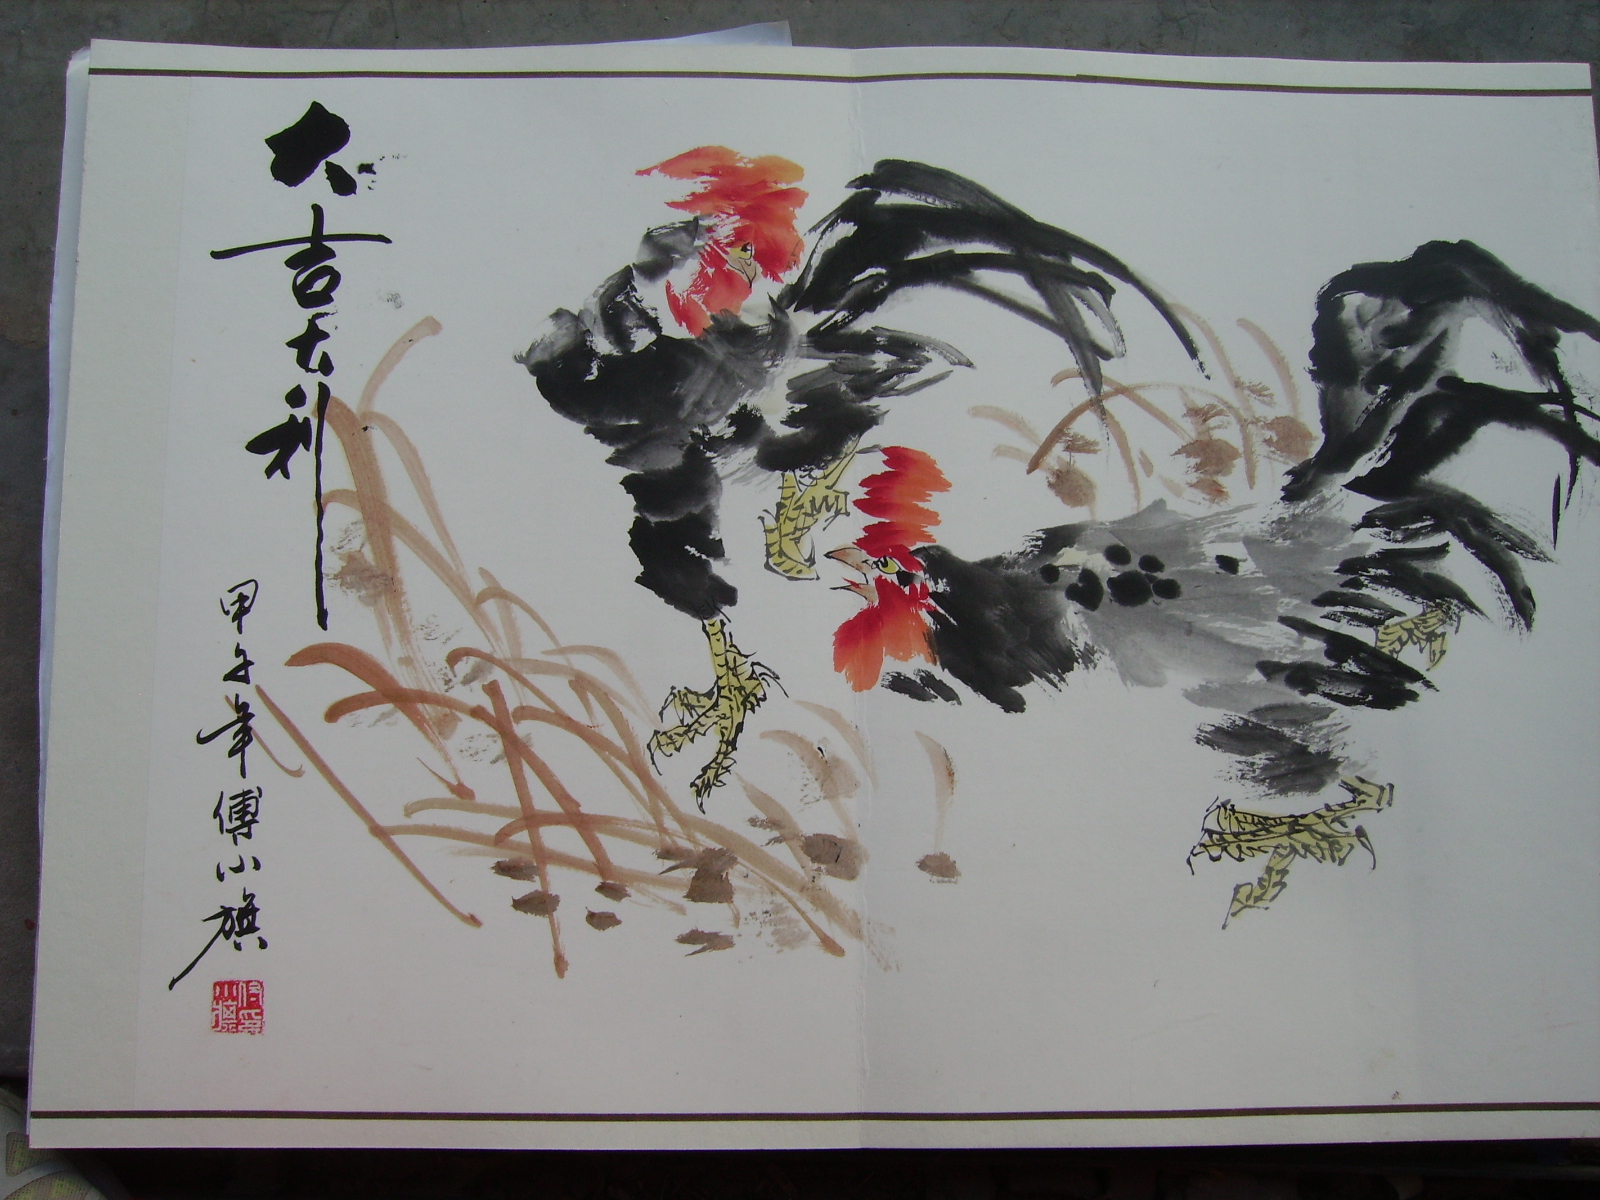 大吉大利
甲午年傅小旗